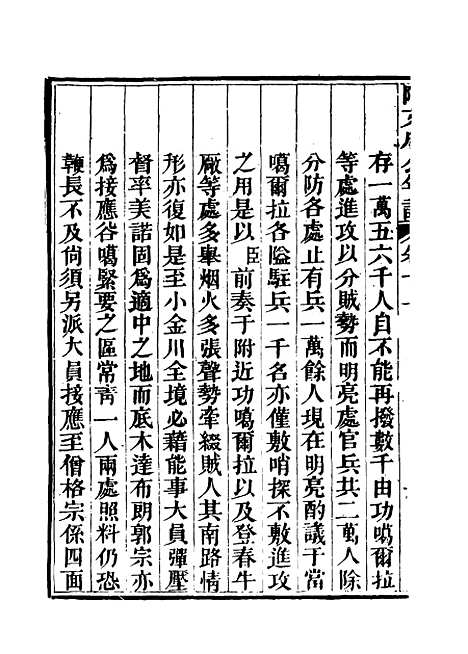 存一萬五六千人自不能再撥數千由功噶爾拉
等處進攻以分賊勢而明亮處官兵共二萬人除
分防各處止有兵一萬餘人現在明亮酌議于當
噶爾拉各隘駐兵一千名亦僅敷哨探不敷進攻
之用是以臣前奏于附近功噶爾拉以及登春牛
廠等處多舉烟火多張聲勢牽綴賊人其南路情
形亦復如是至小金川全境必藉能事大員彈壓
督率美諾固爲適中之地而底木達布朗郭宗亦
爲接應谷噶緊要之區常靑一人兩處照料仍恐
鞭長不及倘須另派大員接應至僧格宗係四面